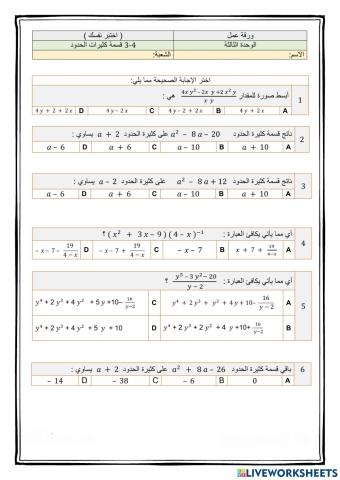 ورقة عمل ( اختبر نفسك )
الوحدة الثالثة 3-4 قسمة كثيرات الحدود
الاسم: الشعبة:
اختر الإجابة الصحيحة مما يلي:
1 أبسط صورة للمقدار (4x y² - 2x y + 2x² y)/(x y) هي :
A 4 y - 2 + 2 x B 4 y - 2 + 2 x C 4 y - 2 x D 4 y + 2 + 2 x
2 ناتج قسمة كثيرة الحدود a² − 8 a − 20 على كثيرة الحدود a + 2 يساوي :
A a + 10 B a − 10 C a + 6 D a − 6
3 ناتج قسمة كثيرة الحدود a² − 8 a + 12 على كثيرة الحدود a − 2 يساوي :
A a + 10 B a − 10 C a + 6 D a − 6
4 أي مما يأتي يكافئ العبارة : (x² + 3 x − 9) (4 − x)⁻¹ ؟
A x + 7 + 19/(4−x) B − x − 7 C − x − 7 + 19/(4−x) D − x − 7 − 19/(4−x)
5 أي مما يأتي يكافئ العبارة : (y⁵ − 3 y² − 20)/(y − 2) ؟
A y⁴ + 2 y³ + y² + 4 y + 10 − 16/(y−2) C y⁴ + 2 y³ + 4 y² + 5 y +10− 16/(y−2)
B y⁴ + 2 y³ + 2 y² + 4 y +10+ 16/(y−2) D y⁴ + 2 y³ + 4 y² + 5 y + 10
6 باقي قسمة كثيرة الحدود a² + 8 a − 26 على كثيرة الحدود a + 2 يساوي :
A 0 B − 6 C − 38 D − 14
LIVEWORKSHEETS